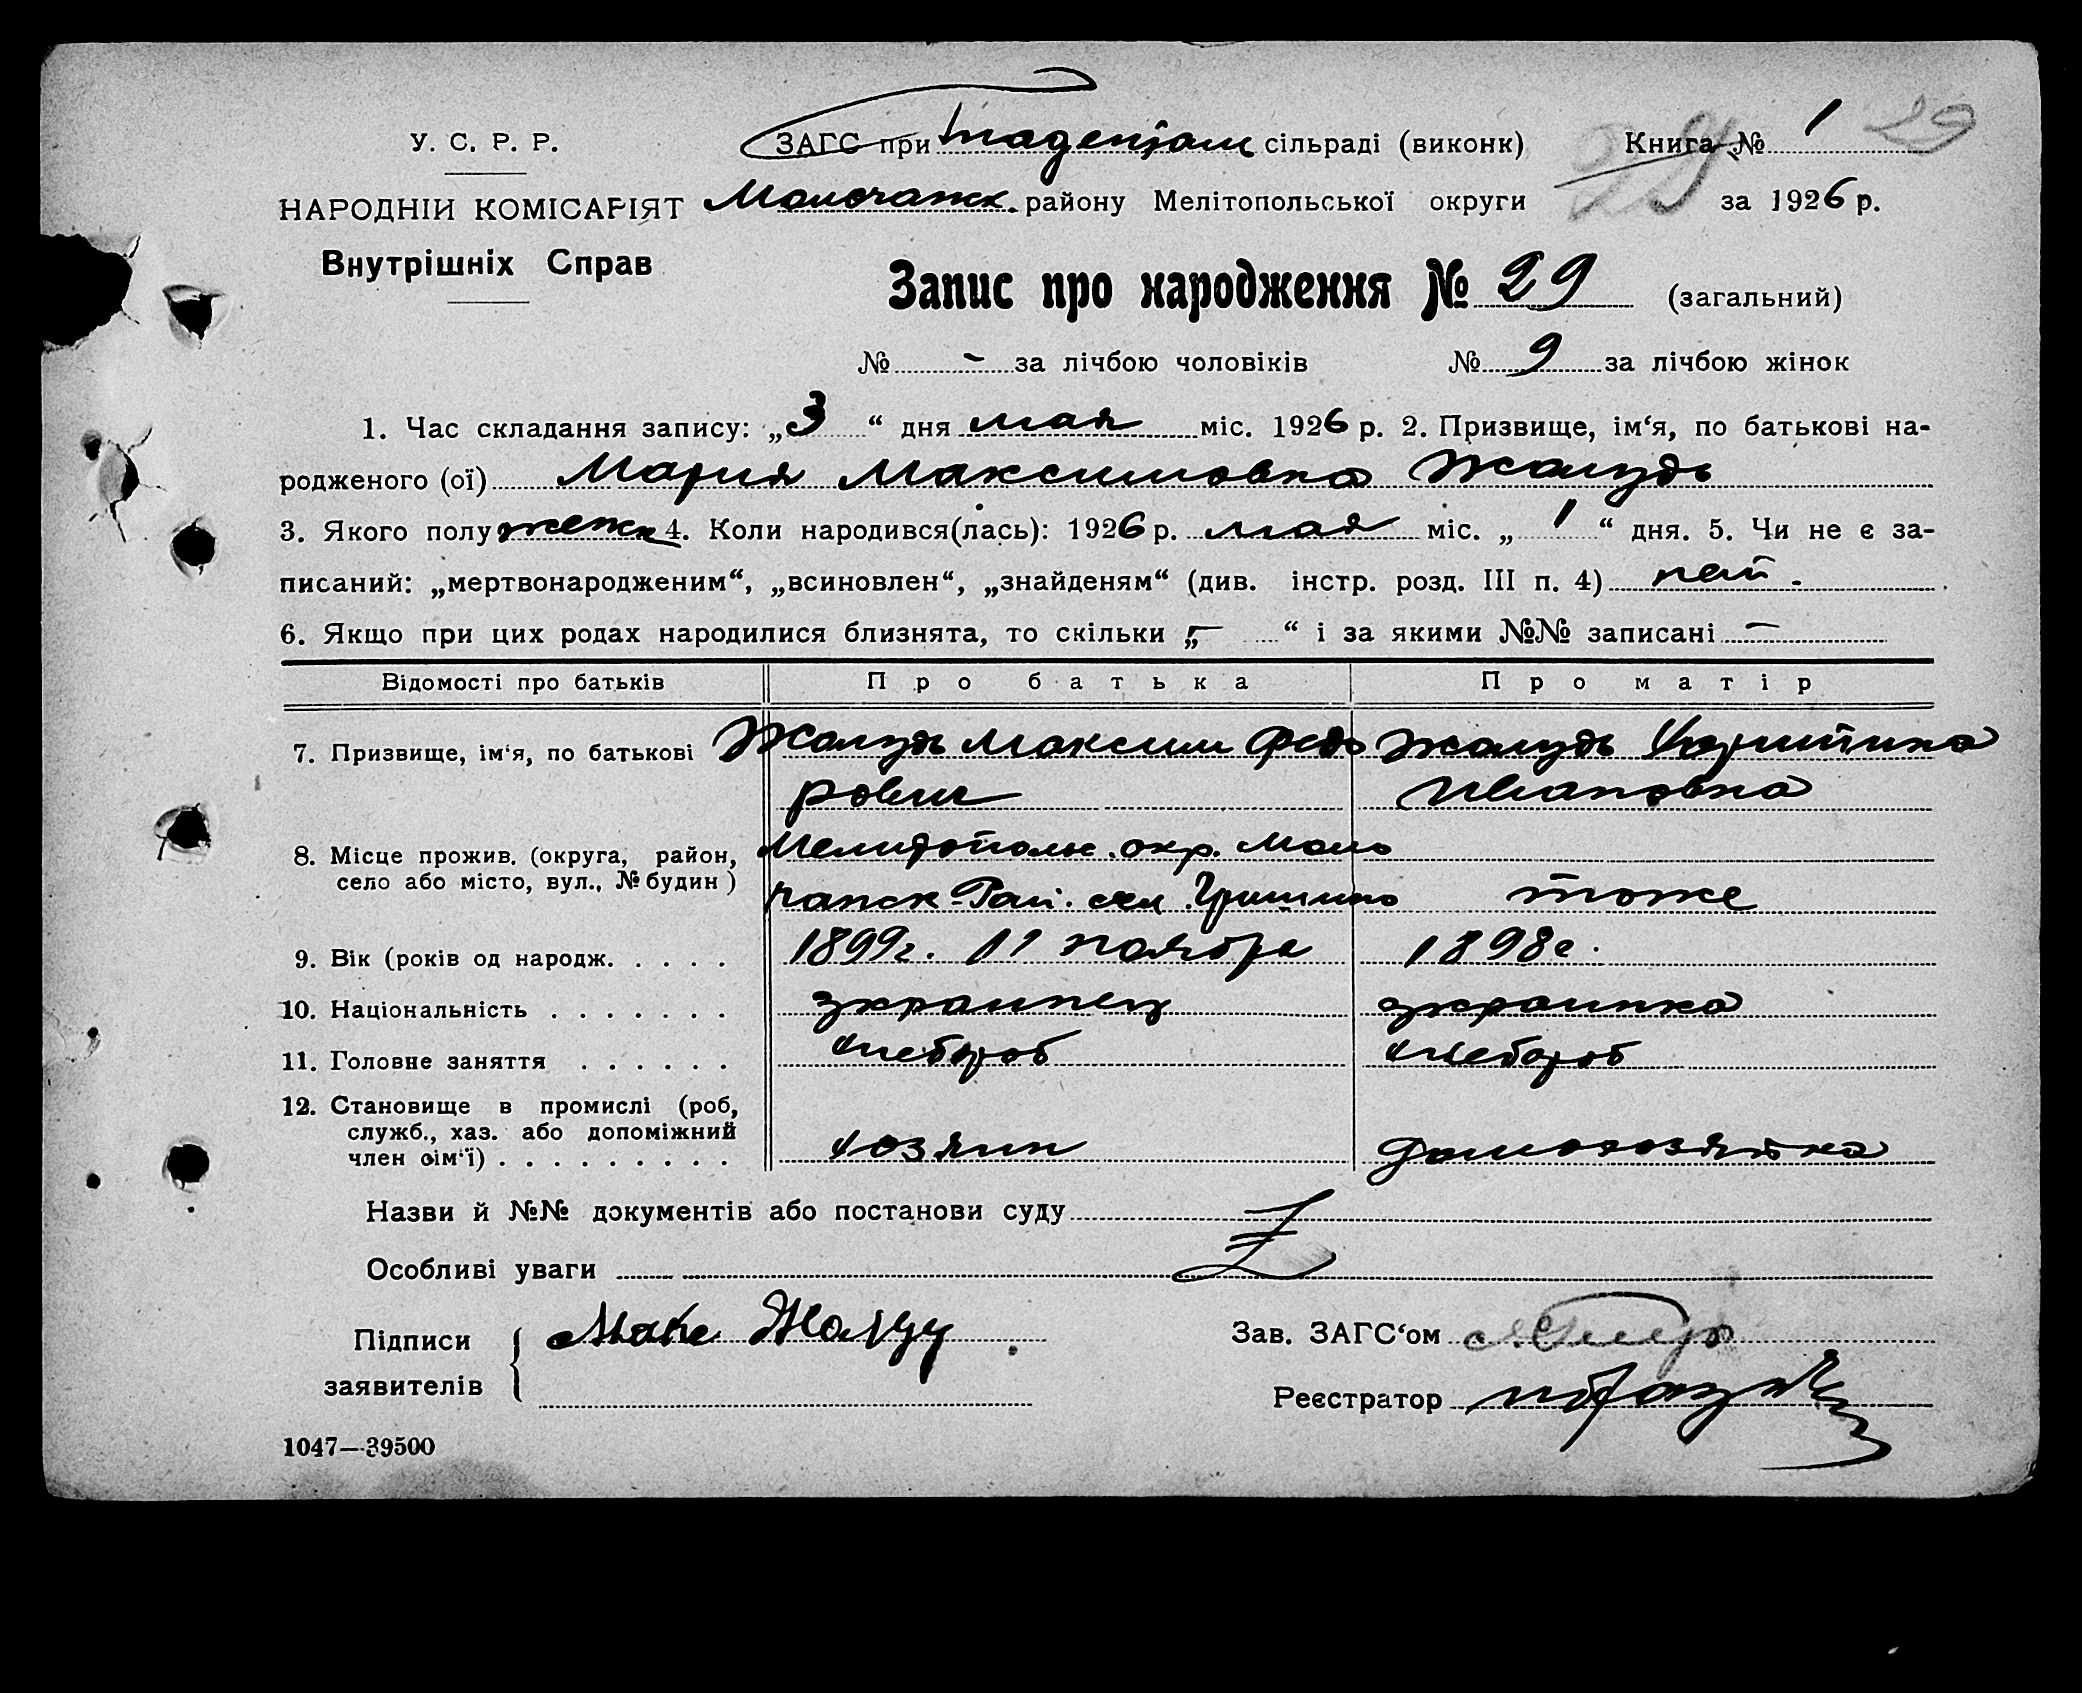 У. С. Р. Р.
НАРОДНІЙ КОМІСАРІЯТ
Внутрішніх Справ
ЗАГС при Тягенсам сільраді (виконк) Книга № 1 29
Молочанск. району Мелітопольської округи за 1926 р.
Запис про народження № 29 (загальний)
№ - за лічбою чоловіків № 9 за лічбою жінок
1. Час складання запису: „3“ дня мая міс. 1926 р. 2. Призвище, ім‘я, по батькові на-
родженого (ої) Мария Максимовна Жолудь
3. Якого полу женск 4. Коли народився(лась): 1926 р. мая міс. „1“ дня. 5. Чи не є за-
писаний: „мертвонародженим“, „всиновлен“, „знайденям“ (див. інстр. розд. III п. 4) нет.
6. Якщо при цих родах народилися близнята, то скільки „-“ і за якими №№ записані -
Відомості про батьків Про батька Про матір
7. Призвище, ім‘я, по батькові Жолудь Максим Федо Жолудь Христина
рович Ивановна
8. Місце прожив. (округа, район, Мелитопольс. окр. Моло
село або місто, вул., № будин) чанск. Рай. сел. тоже
9. Вік (років од народж. . . . . 1899г. 11 ноября 1898г.
10. Національність . . . . . . . украинец украинка
11. Головне заняття . . . . . . хлебороб хлебороб
12. Становище в промислі (роб,
служб., хаз. або допоміжний
член сім‘ї) . . . . . . . . . хозяин домохозяйка
Назви й №№ документів або постанови суду
Особливі уваги
Підписи Макс Жолуд Зав. ЗАГС‘ом
заявителів Реєстратор
1047—39500